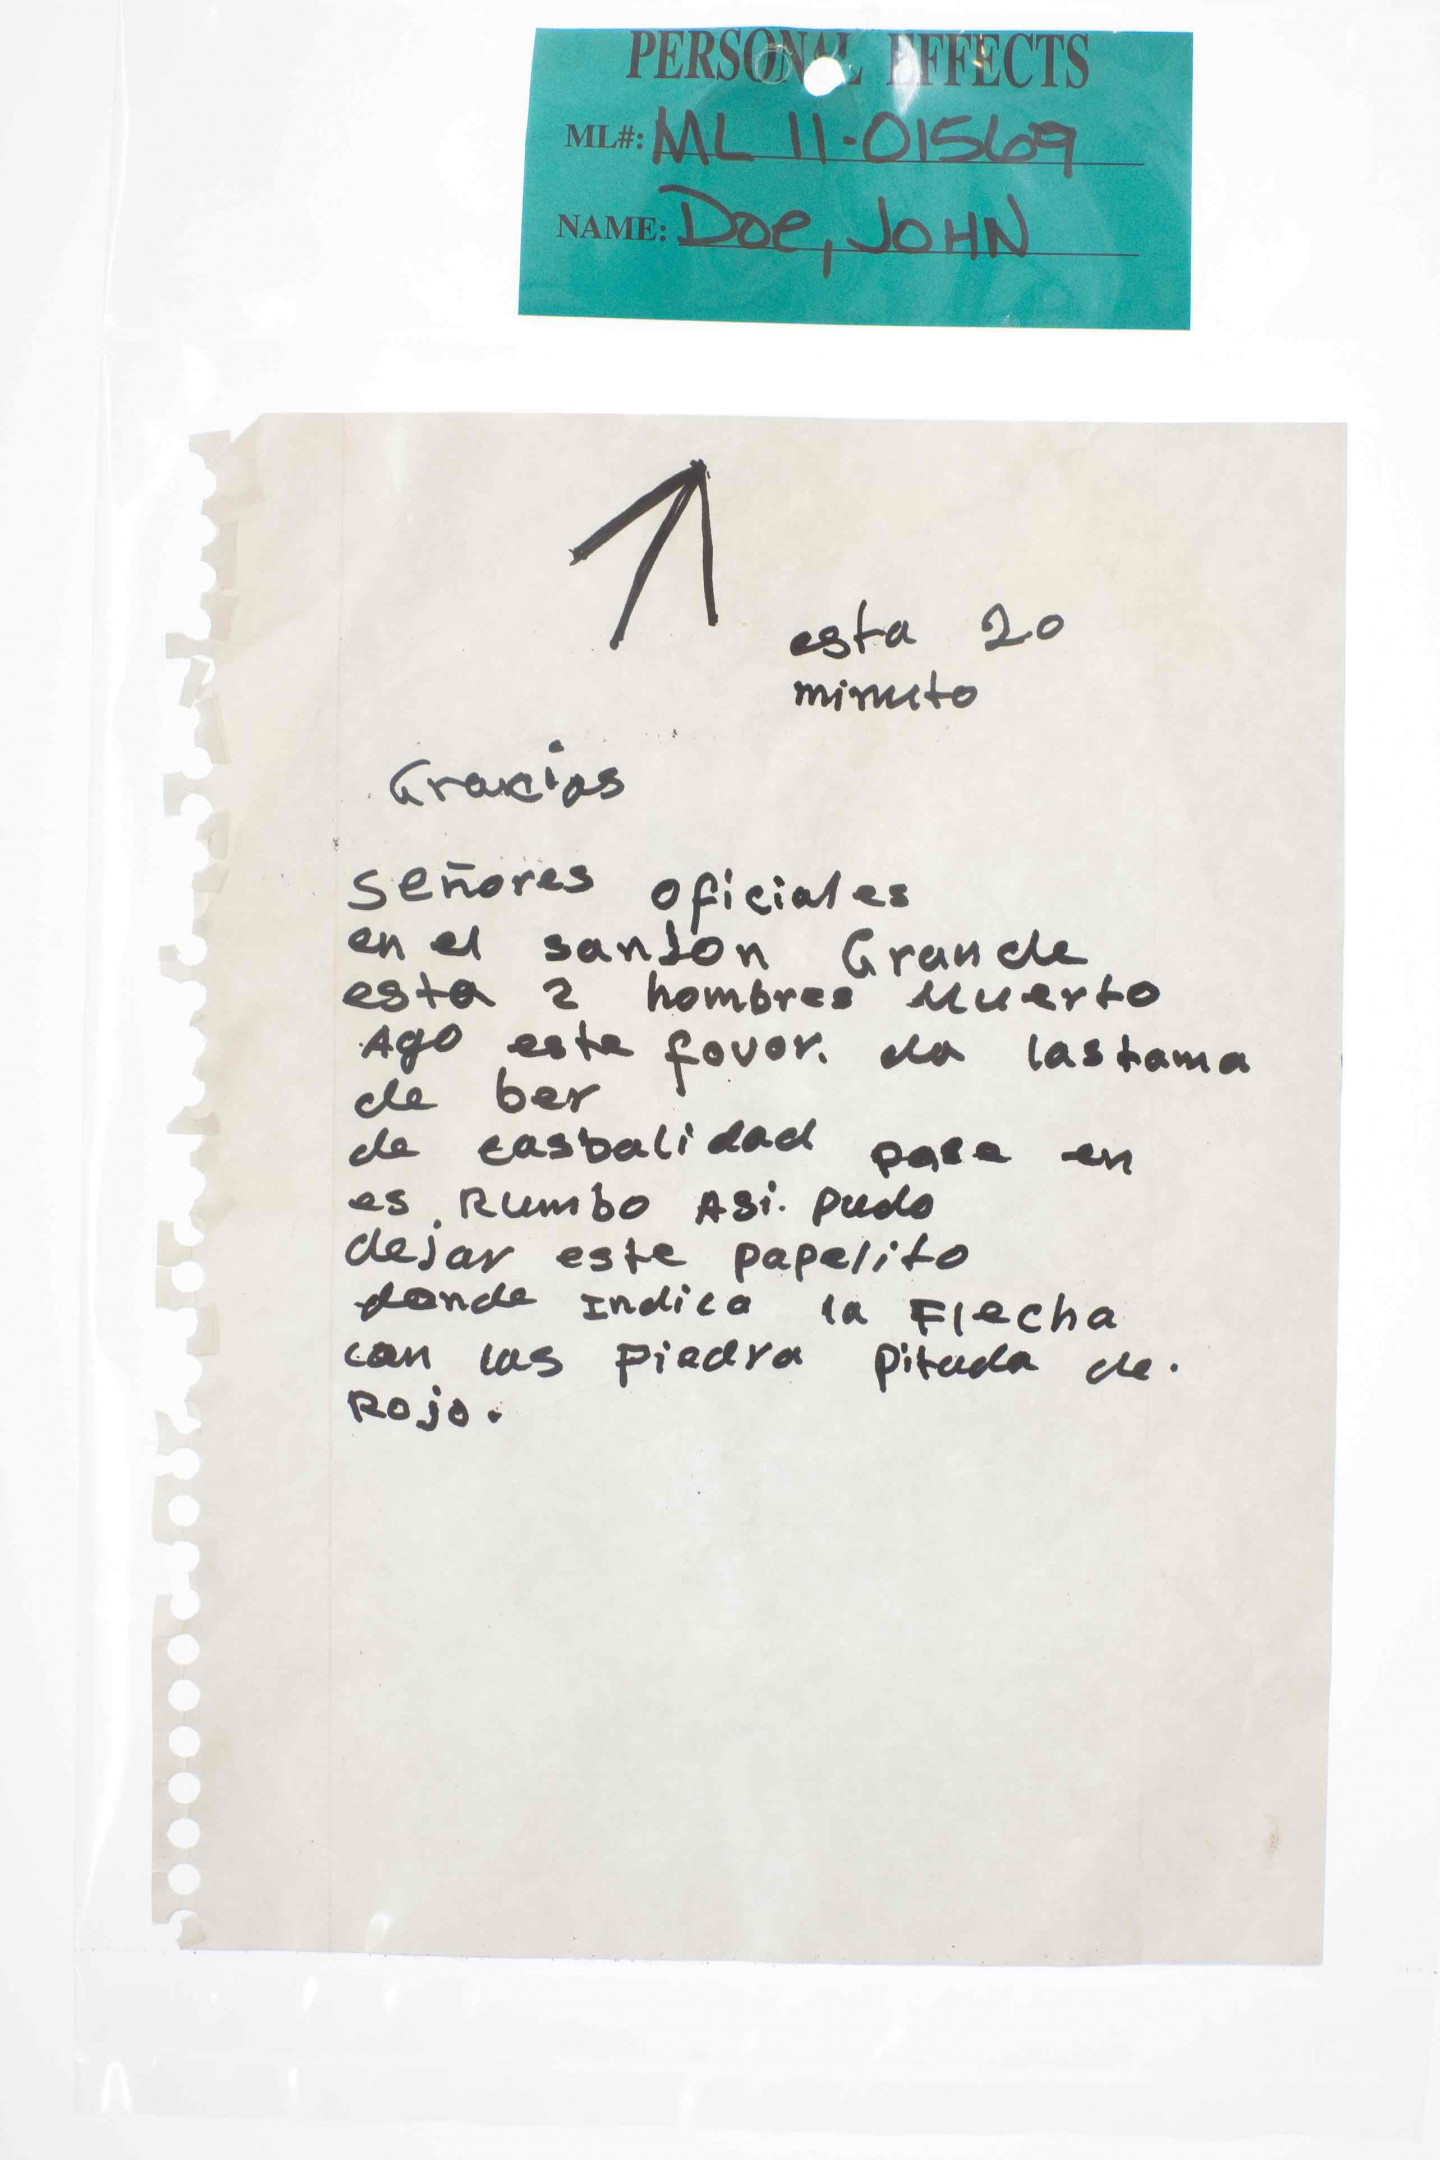 PERSONAL EFFECTS
ML#: ML 11-01569
NAME: Doe, JOHN
esta 20
minuto
Gracias
Señores oficiales
en el sanjon Grande
esta 2 hombres Muerto
Ago este favor. da lastama
de ber
de casbalidad pase en
es Rumbo Asi. pudo
dejar este papelito
donde Indica la Flecha
con las piedra pitada de.
Rojo.